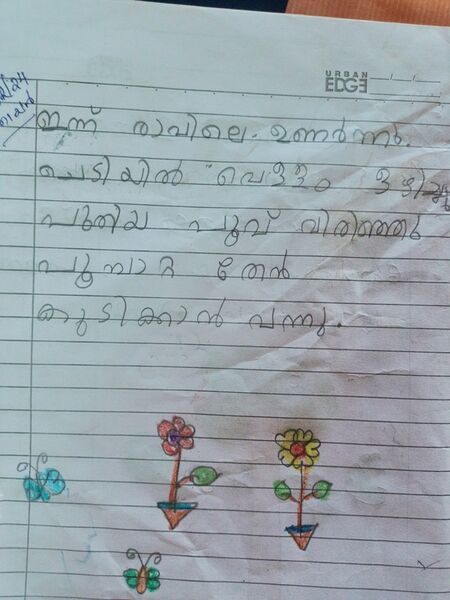 URBAN
EDGE
ഇന്ന് രാവിലെ ഉണർന്നു.
ചെടിയിൽ വെള്ളം ഒഴിച്ചു
പുതിയ പൂവ് വിരിഞ്ഞു
പൂമ്പാറ്റ തേൻ
കുടിക്കാൻ വന്നു.